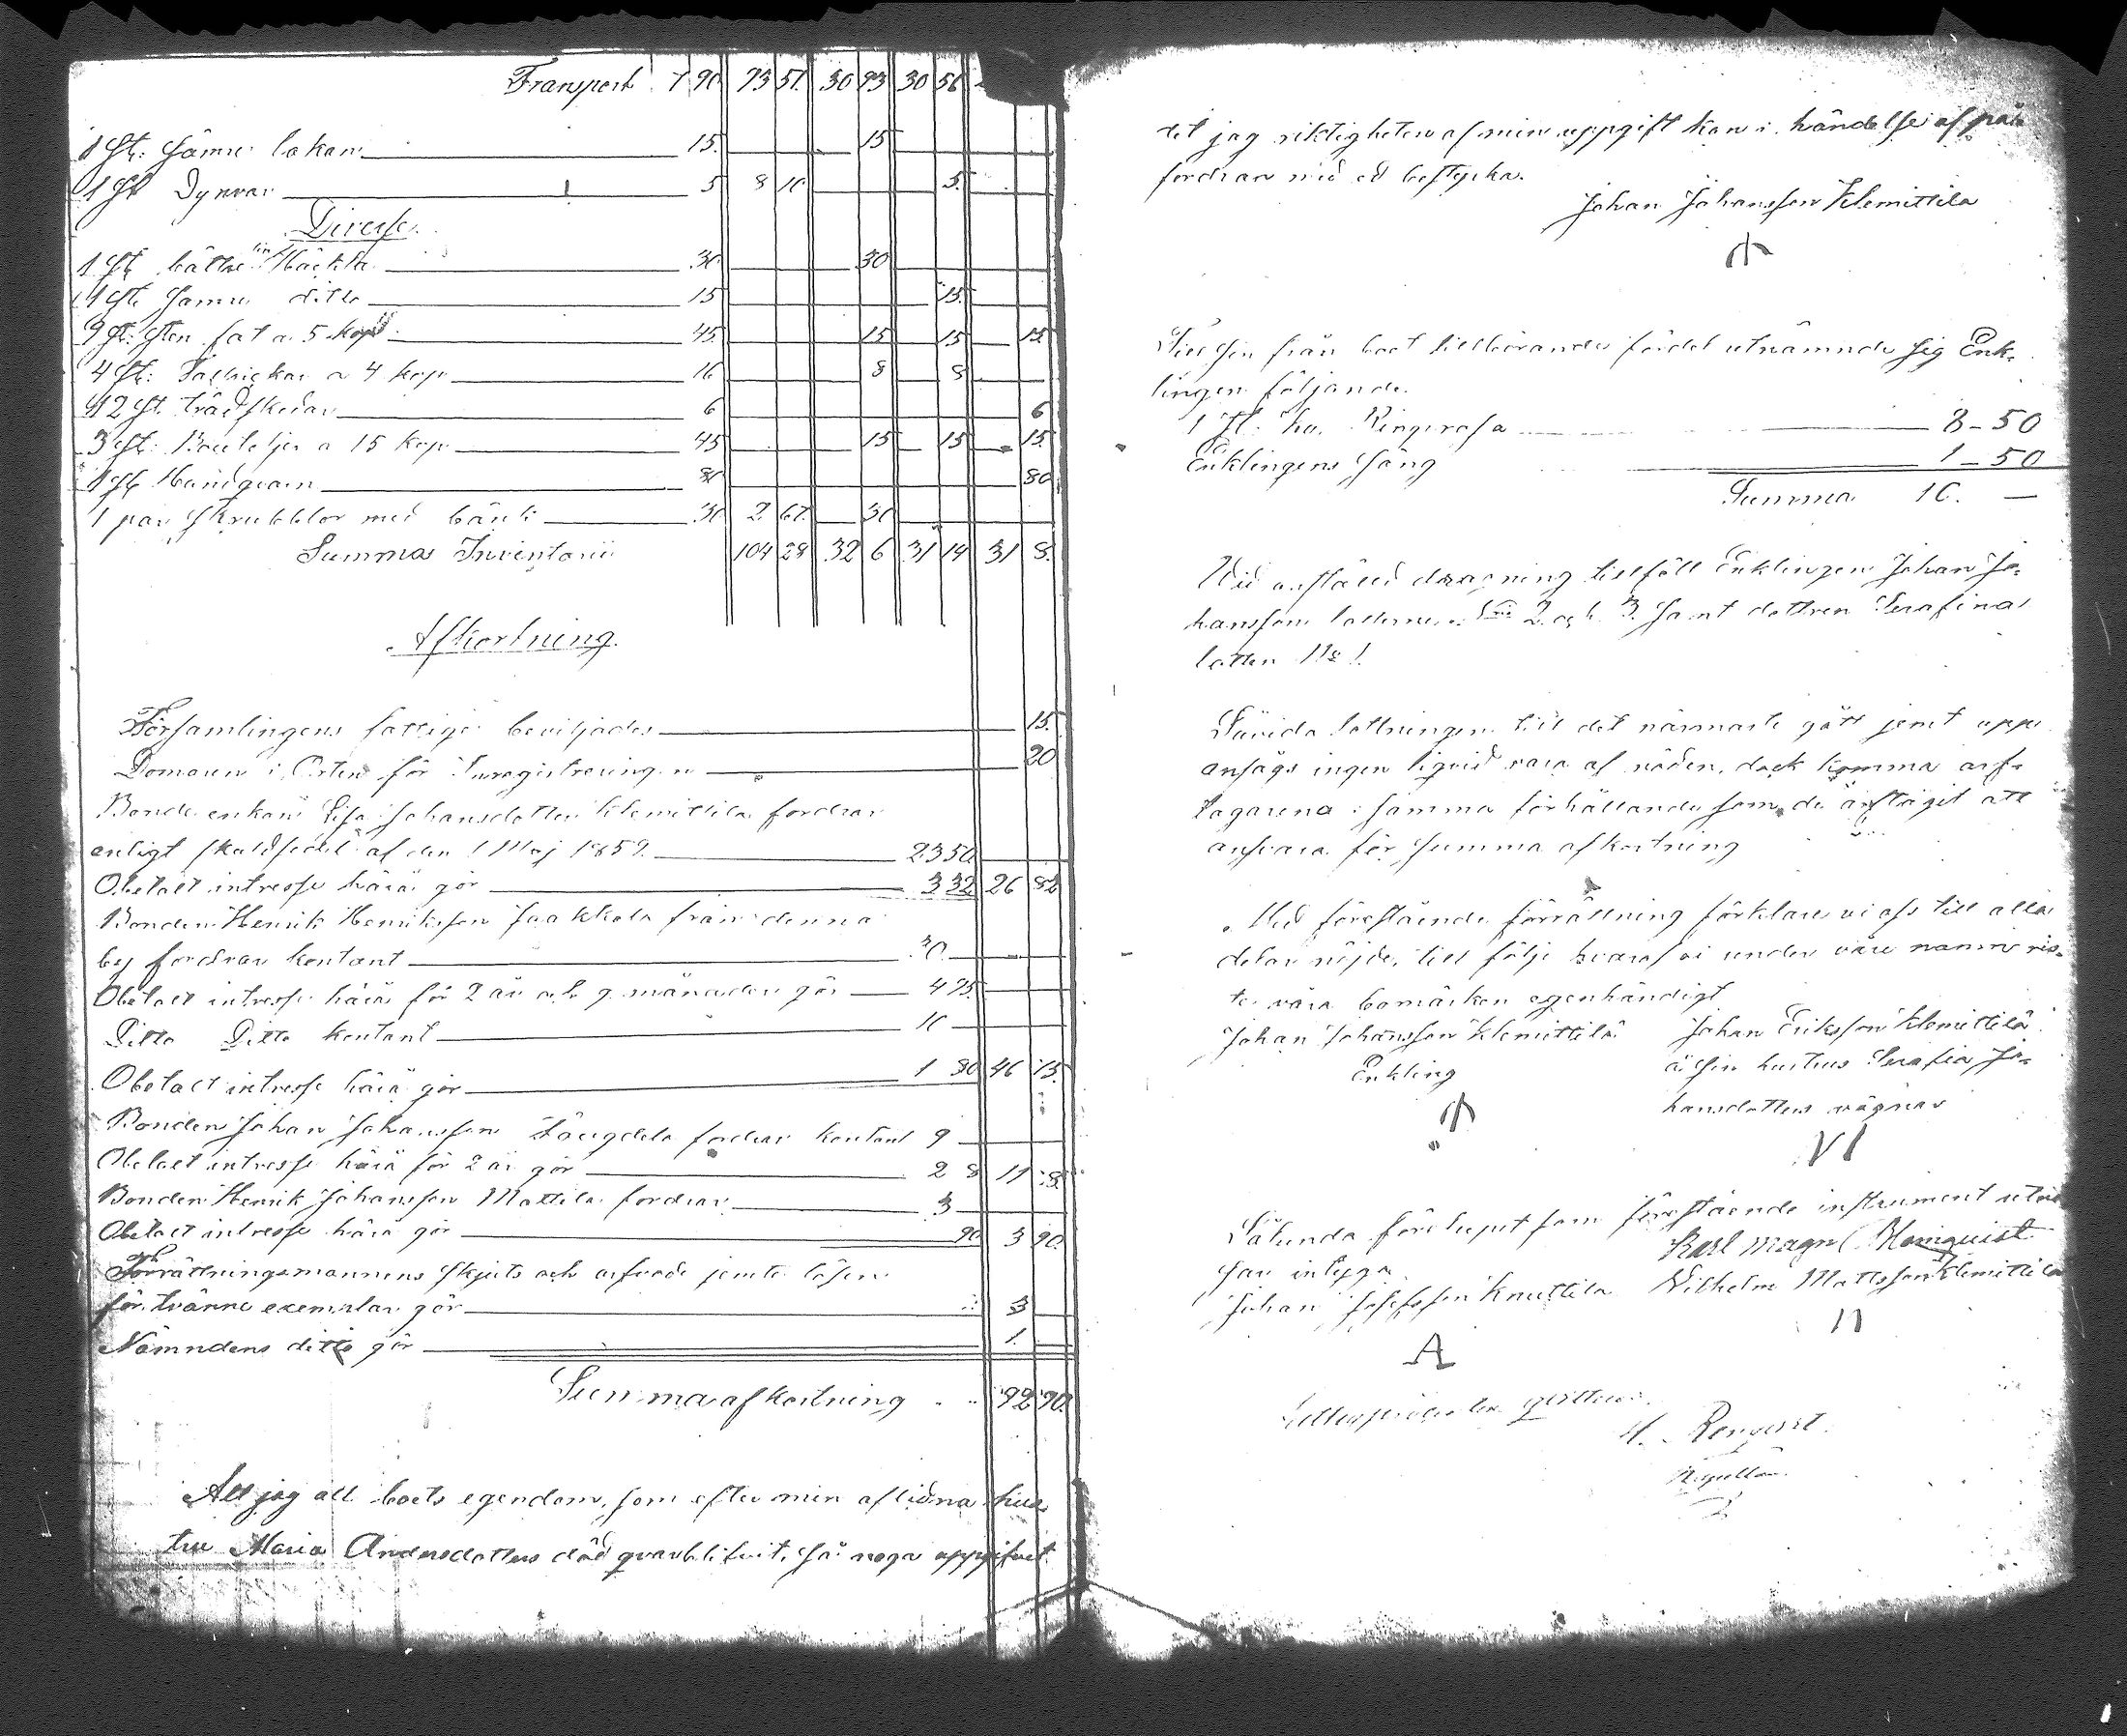 Transport 7 90 93 51. 30 93 30 56
1 St: sämre lakan 15. 15
1 St Dynvar 5 8 10 5.
Diverse.
1 St bättre lin Häckla 30 30
1 St: sämre ditto 15 15.
9 St: sten fat a 5 kop 45. 15 15 15.
4 St: Tallrickar a 4 kop 16 8 8
12 St. trädskedar 6 6
3 St: Bouteljer a 15 kop 45 15 15 15.
1 St Handqvarn 80 80
1 par skrubblor med bänk 30 2 67. 30
Summa Inventarii 104 28 32 6 31 14 31 8.
Afkortning.
Församlingens fattige beviljades 15.
Domaren i Orten för Inregistreringen 20
Bonde enkan Lisa Johansdotter Klemettilä fordrar
enligt skuldsedel af den 1 Maj 1859. 23 50
Obetalt intresse härå gör 3 32 26 82
Bonden Henrik Henriksson Jaakkola från denna
by fordrar kontant 30.
Obetalt intresse härå för 2 år och 9 månader gör 4 95
Ditto Ditto kontant 10
Obetalt intresse härå gör 1 80 46 75.
Bonden Johan Johansson fordrar kontant 9
Obetalt intresse härå för 2 år gör 2 8 11 8.
Bonden Henrik Johansson Mattila fordrar 3
Obetalt intresse härå gör 90 3 90.
Förrättningsmannens skjuts och arfvode jemte lösen
för tvänne exemplar gör 3
Nämndens ditto gör 1.
Summa afkortning 92 90.
Att jag all boets egendom, som efter min aflidna hus
tru Maria Andersdotters död qvarblifvit, så noga uppgifvet
det jag riktigheten af min uppgift kan i händelse af på
fordran med ed bestyrka.
Johan Johansson Klemittila
Till sin från boet tillhörande fördel utnämnde sig Enk-
lingen följande.
1 St: Ringrosa 8-50
Enklingens säng 1-50
Summa 10. —
Wid anställd dragning tillföll Enklingen Johan Jo-
hansson lotterne No 2 och 3 samt dottren Serafina
lotten No 1.
Såvida lottningen till det närmaste gått jemt upp
ansågs ingen liqvid vara af nöden, dock komma arf-
tagarena i samma förhållande som de arftagit att
ansvara för summa afkortning
Med förestående förrättning förklare vi oss till alla
delar nöjde, till följe hvaraf vi under våre namn ris-
te våra bomärken egenhändigt
Johan Johansson Klemittilä Johan Eriksson Klemittilä
Enkling å sin hustrus Serafia Jo-
hansdotters vägnar
Sålunda föreluput som förestående instrument utvi
sar intyga Karl Magn Blomquist
Johan Josefsson Knuttila Wilhelm Mattsson Klemittila
A